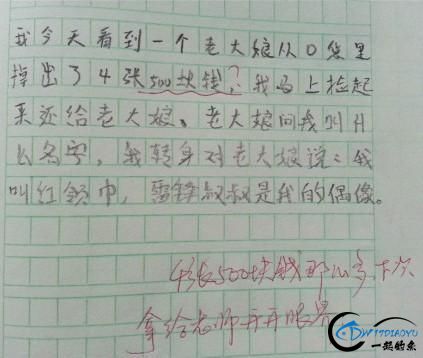 我今天看到一个老大娘从口袋里
掉出了4张500块钱,?我马上捡起
来还给老大娘、老大娘问我叫什
么名字,我转身对老大娘说:我
叫红领巾,雷锋叔叔是我的偶像。
4张500块钱那么多,下次
拿给老师开开眼界
WWW.17DIAOYU
一起钓鱼